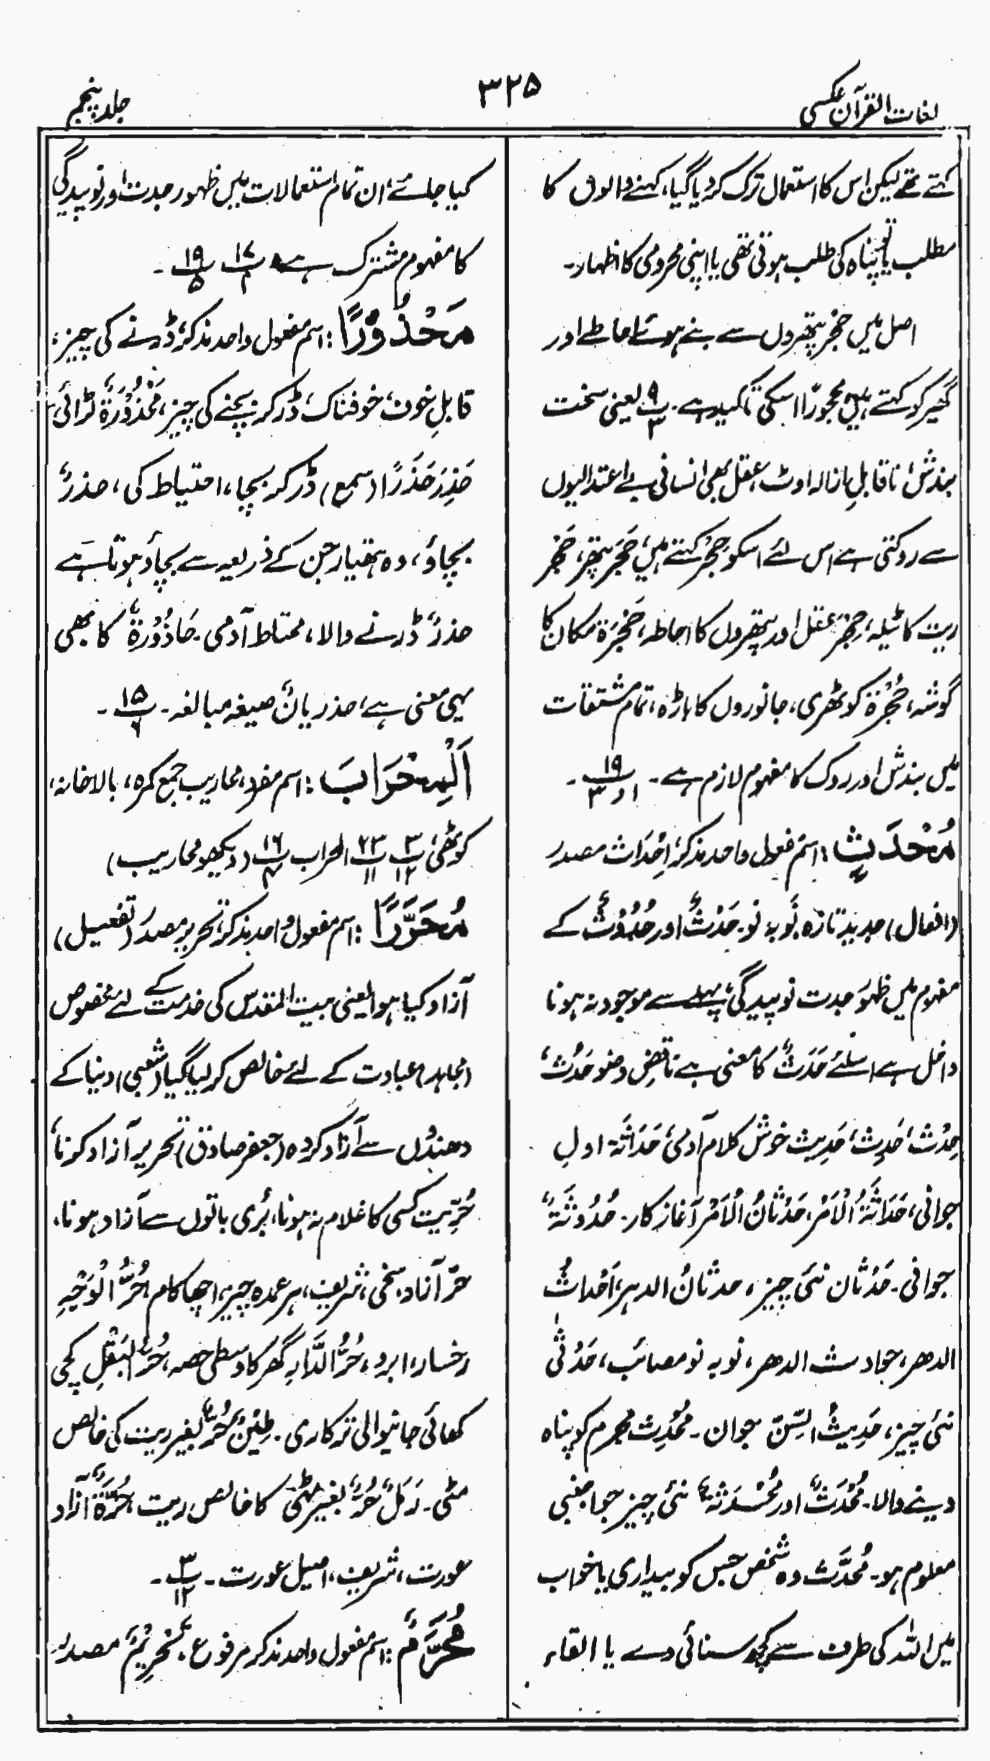 لغات القرآن عکسی
۳۲۵
جلد پنجم
کہتے تھے لیکن اس کا استعمال ترک کر دیا گیا، کہنے والوں کا
مطلب یا پناہ کی طلب ہوتی تھی یا اپنی محرومی کا اظہار۔
اصل میں حجر پتھروں سے بنے ہوئے احاطے اور
گھیر کو کہتے ہیں محجورًا اسکی تاکید ہے۔ ۹/۳ یعنی سخت
بندش، ناقابلِ ازالہ اوٹ، عقل بھی انسانی بے اعتدالیوں
سے روکتی ہے اس لئے اسکو حِجْر کہتے ہیں، حَجَر پتھر، حَجْر
ریت کا ٹیلہ، حِجْر عقل اور پتھروں کا احاطہ، حَنْجَرَۃ مکان کا
گوشہ، حُجْرَۃ کوٹھری، جانوروں کا باڑہ، تمام مشتقات
میں بندش اور روک کا مفہوم لازم ہے۔ ۱۹/۱ و ۳ ۔
مُحْدَثٍ: اسم مفعول واحد مذکر، اِحْدَاث مصدر
(افعال) جدید تازہ نَو بہ نو۔ حَدْثٌ اور حُدُوْثٌ کے
مفہوم میں ظہور جدت نوپیدگی، پہلے سے موجود نہ ہونا
داخل ہے اسلئے حَدَثٌ کا معنی ہے ناقضِ وضو حَدُث،
حِدْث، حَدِث، حَدِیث خوش کلام آدمی، حَدَاثَۃ اولِ
جوانی، حَدَاثَۃُ الْاَمْر، حِدْثَانُ الْاَمْر آغازِ کار۔ حُدُوثَۃٌ
جوانی۔ حَدْثان نئی چیز، حدثانُ الدہر، اَحْداثُ
الدھر، حوادث الدھر، نو بہ نو مصائب، حَدْثٰی
نئی چیز، حَدِیثُ السِّنّ جوان۔ مُحْدِث مجرم کو پناہ
دینے والا۔ مُحْدَثٌ اور مُحْدَثَۃٌ نئی چیز جو اجنبی
معلوم ہو۔ مُحَدَّث وہ شخص جس کو بیداری یا خواب
میں اللہ کی طرف سے کچھ سنائی دے یا القاء
کیا جائے، ان تمام استعمالات میں ظہور جدت اور نوپیدگی
کا مفہوم مشترک ہے، ۱۷/۱ ۱۹/۵ ۔
مَحْذُوْرًا: اسم مفعول واحد مذکر، ڈرنے کی چیز،
قابلِ خوف، خوفناک، ڈر کر بچنے کی چیز، مَحْذُوْرَۃٌ لڑائی۔
حَذِرَ حَذَرًا (سمع) ڈر کر بچا، احتیاط کی، حذرٌ
بچاؤ، وہ ہتھیار جن کے ذریعہ سے بچاؤ ہوتا ہے
حذرٌ ڈرنے والا، محتاط آدمی۔ حَاذُوْرَۃٌ کا بھی
یہی معنی ہے، حذریانٌ صیغہ مبالغہ۔ ۱۵/۶ ۔
اَلْمِحْرَابَ: اسم مفرد، محاریب جمع کمرہ، بالاخانہ،
کوٹھی ۳/۱۲ ۲۳/۱۱ المحراب ۱۶/۴ (دیکھو محاریب)
مُحَرَّرًا: اسم مفعول واحد مذکر، تحریر مصدر (تفعیل)
آزاد کیا ہوا یعنی بیت المقدس کی خدمت کے لئے مخصوص
(مجاہد) عبادت کے لئے خالص کر لیا گیا (شعبی) دنیا کے
دھندوں سے آزاد کردہ (جعفر صادق) تحریر آزاد کرنا،
حُرِّیت کسی کا غلام نہ ہونا، بُری باتوں سے آزاد ہونا،
حرّ آزاد، سخی، شریف، ہر عمدہ چیز، اچھا کام، حُرُّ الْوَجْہِ
رخسار، ابرو، حُرُّ الدَّارِ گھر کا وسطی حصہ، حُرُّ الْبَقْلِ کچی
کھائی جانیوالی ترکاری۔ طِیْنٌ حُرٌّ بغیر ریت کی خالص
مٹی۔ رَمْلٌ حُرٌّ بغیر مٹی کا خالص ریت، حُرَّۃٌ آزاد
عورت، شریف، اصیل عورت۔ ۳/۱۲ ۔
مُحَرَّمٌ: اسم مفعول واحد مذکر مرفوع، تَحْرِیْمٌ مصدر